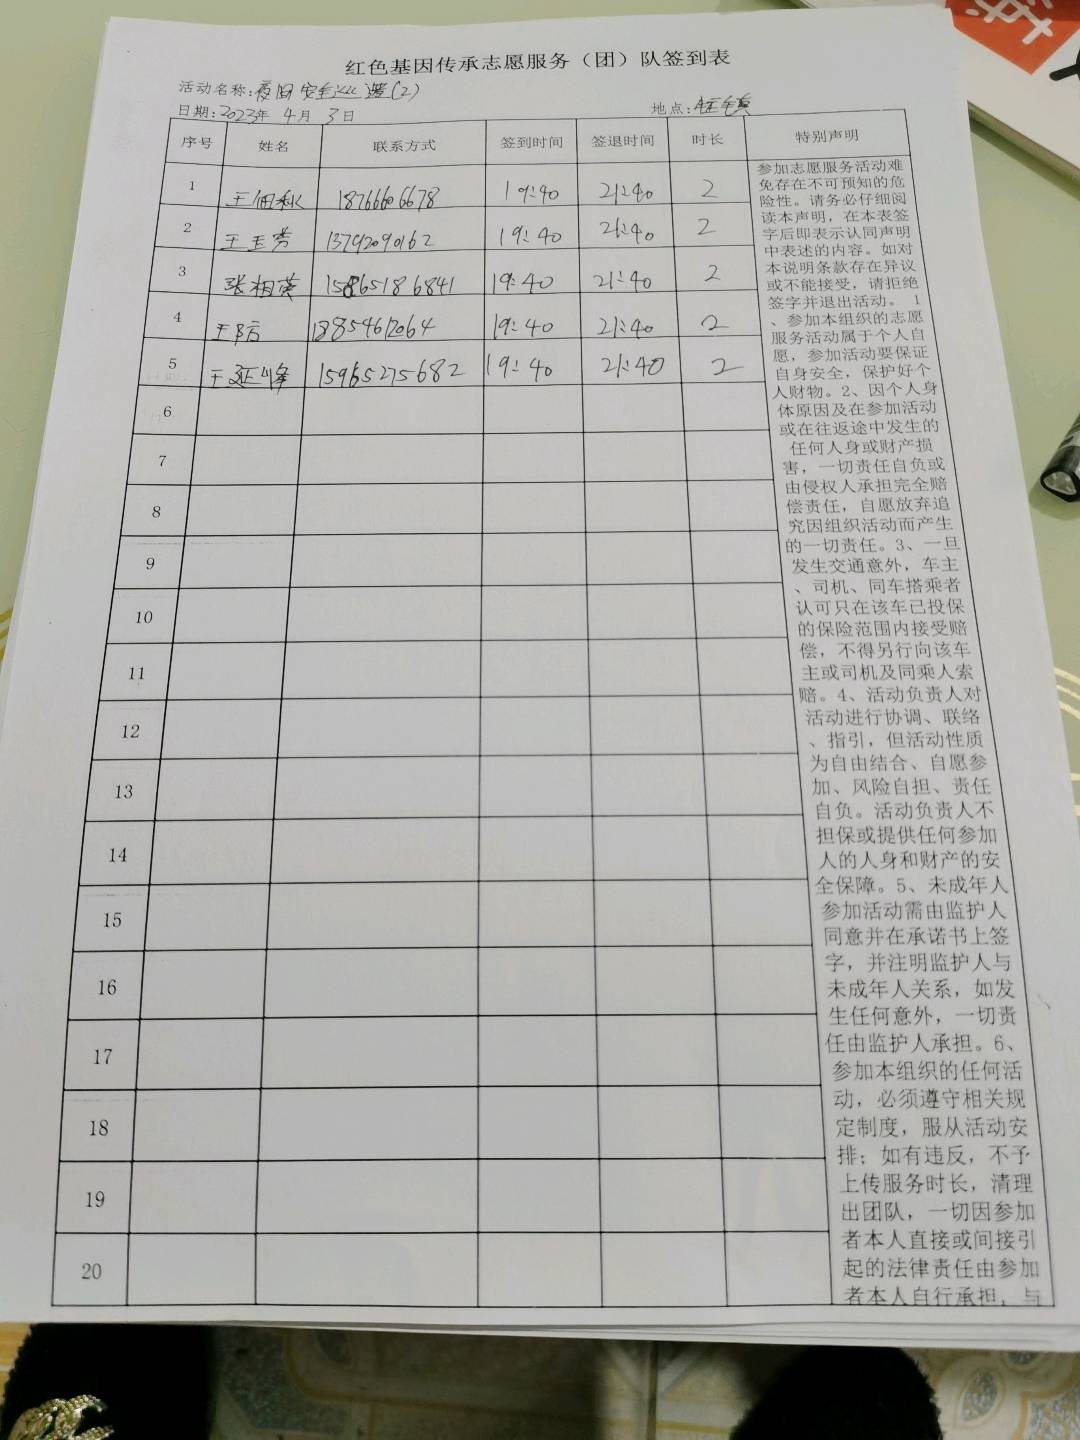 红色基因传承志愿服务（团）队签到表
活动名称:夜间安全巡逻(2)
日期:2023年 4月 3日 地点:
序号 姓名 联系方式 签到时间 签退时间 时长 特别声明
1 王佃秋 18766606678 19:40 21:40 2
2 王玉芳 13792090162 19:40 21:40 2
3 张相英 15865186841 19:40 21:40 2
4 王 18854612064 19:40 21:40 2
5 王延峰 15965275682 19:40 21:40 2
6
7
8
9
10
11
12
13
14
15
16
17
18
19
20
参加志愿服务活动难
免存在不可预知的危
险性。请务必仔细阅
读本声明，在本表签
字后即表示认同声明
中表述的内容。如对
本说明条款存在异议
或不能接受，请拒绝
签字并退出活动。 1
、参加本组织的志愿
服务活动属于个人自
愿，参加活动要保证
自身安全，保护好个
人财物。2、因个人身
体原因及在参加活动
或在往返途中发生的
任何人身或财产损
害，一切责任自负或
由侵权人承担完全赔
偿责任，自愿放弃追
究因组织活动而产生
的一切责任。3、一旦
发生交通意外，车主
、司机、同车搭乘者
认可只在该车已投保
的保险范围内接受赔
偿，不得另行向该车
主或司机及同乘人索
赔。4、活动负责人对
活动进行协调、联络
、指引，但活动性质
为自由结合、自愿参
加、风险自担、责任
自负。活动负责人不
担保或提供任何参加
人的人身和财产的安
全保障。5、未成年人
参加活动需由监护人
同意并在承诺书上签
字，并注明监护人与
未成年人关系，如发
生任何意外，一切责
任由监护人承担。6、
参加本组织的任何活
动，必须遵守相关规
定制度，服从活动安
排；如有违反，不予
上传服务时长，清理
出团队，一切因参加
者本人直接或间接引
起的法律责任由参加
者本人自行承担，与